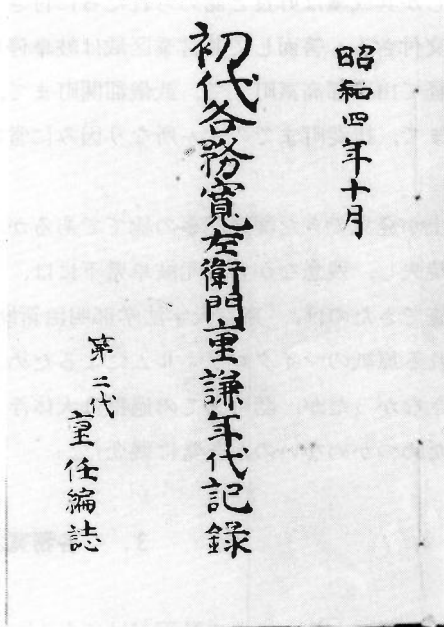 昭和四年十月
初代各務寛左衛門重謙年代記録
第二代 重任編誌